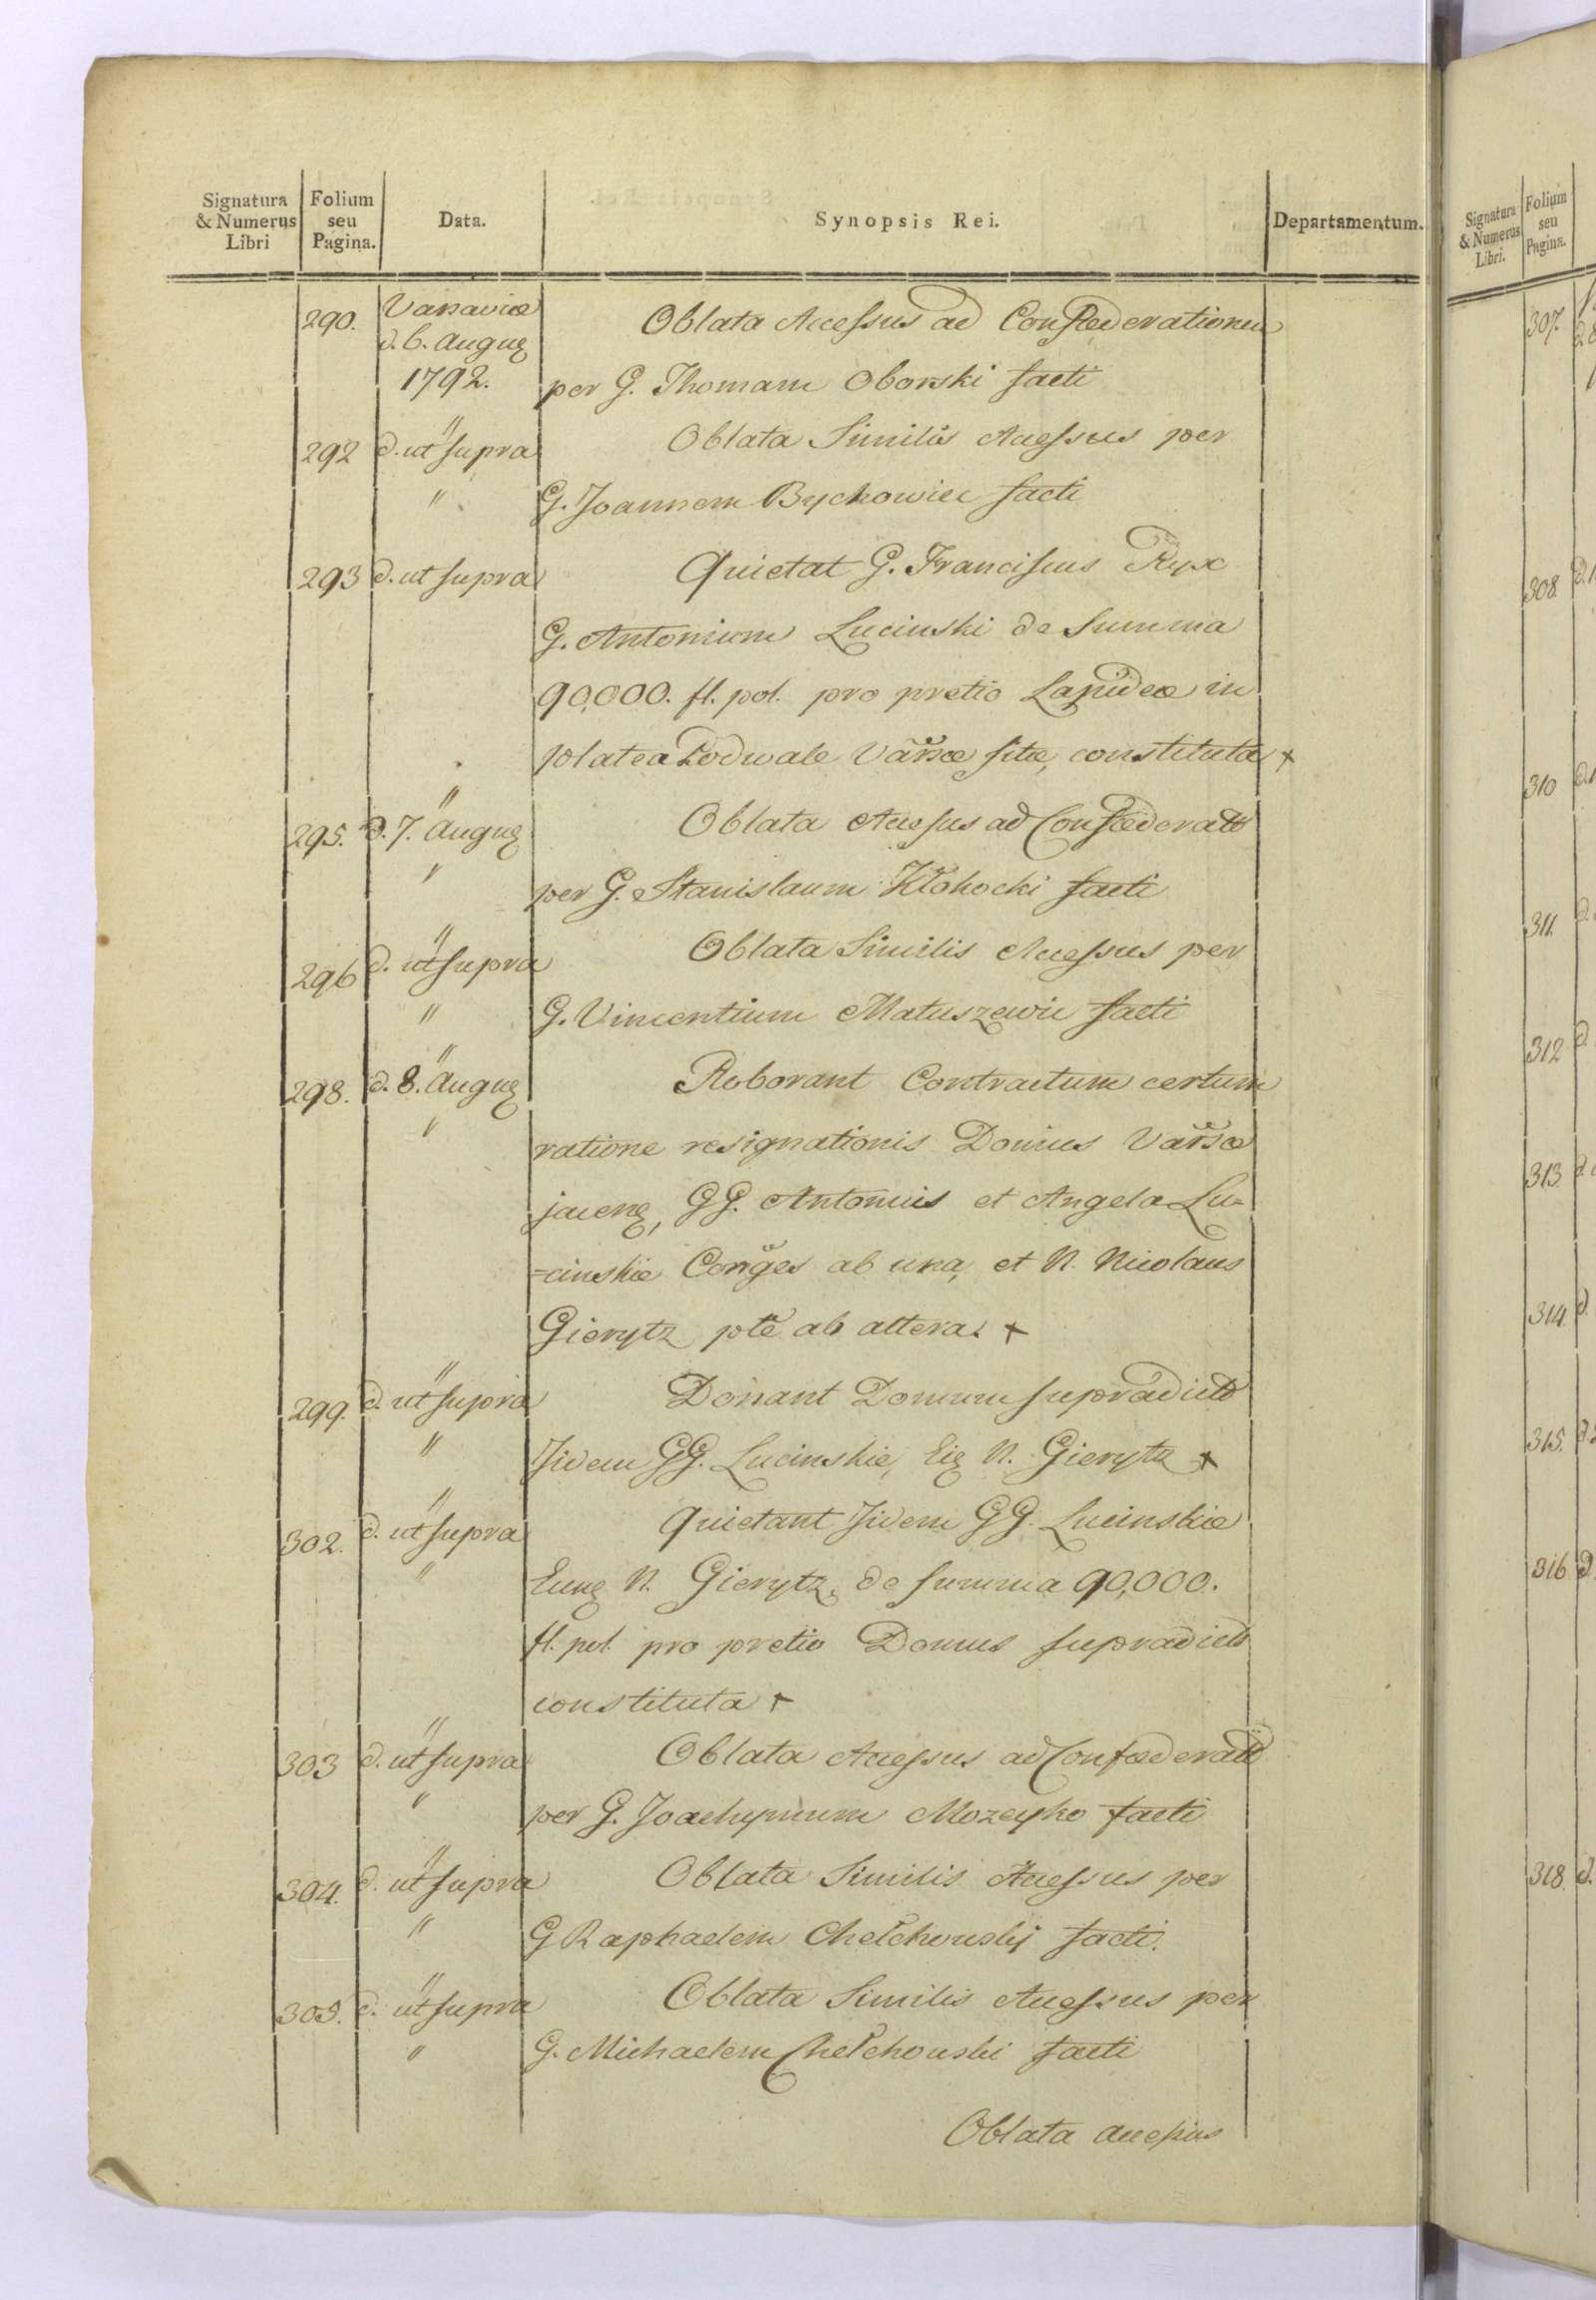 Signatura & Numerus Libri | Folium seu Pagina. | Data. | Synopsis Rei. | Departamentum.
290. Varsaviæ Oblata Accessus ad Confœderationem
d. 6. Augus
1792. per G. Thomam Oborski facti
292 d. ut supra Oblata Similis Accessus per
" G. Joannem Bychowiec facti
293 d. ut supra Quietat G. Franciscus Ryx
G. Antonium Lucinski de Summa
90,000. fl. pol. pro pretio Lapideæ in
platea Podwale Varsæ sitæ, constituta +
295. d. 7. Augus Oblata Accessus ad Confœderatt
" per G. Stanislaum Kłokocki facti
296 d. ut supra Oblata Similis Accessus per
" G. Vincentium Matuszewic facti
298. d. 8. Augus Roborant Contractum certum
" ratione resignationis Domus Varsæ
jacens, GG. Antonius et Angela Lu=
=cinskie Conges ab una, et N. Nicolaus
Gierytz pte ab altera. +
299. d. ut supra Donant Domum supradict
" Iidem GG. Lucinskie, Eid N. Gierytz +
302. d. ut supra Quietant Iidem GG. Lucinskie
" Eund N. Gierytz, de summa 90,000.
fl. pol. pro pretio Domus supradict
constituta +
303 d. ut supra Oblata Accessus ad Confœderatt
" per G. Joachymum Mozeyko facti
304. d. ut supra Oblata Similis Accessus per
" G Raphaelem Chełchowski facti.
305. d. ut supra Oblata Similis Accessus per
" G. Michaelem Chełchouski facti
Oblata Accessus
Signatura & Numerus Libri. | Folium seu Pagina.
307.
308
310
311.
312
313
314.
315.
316
318.